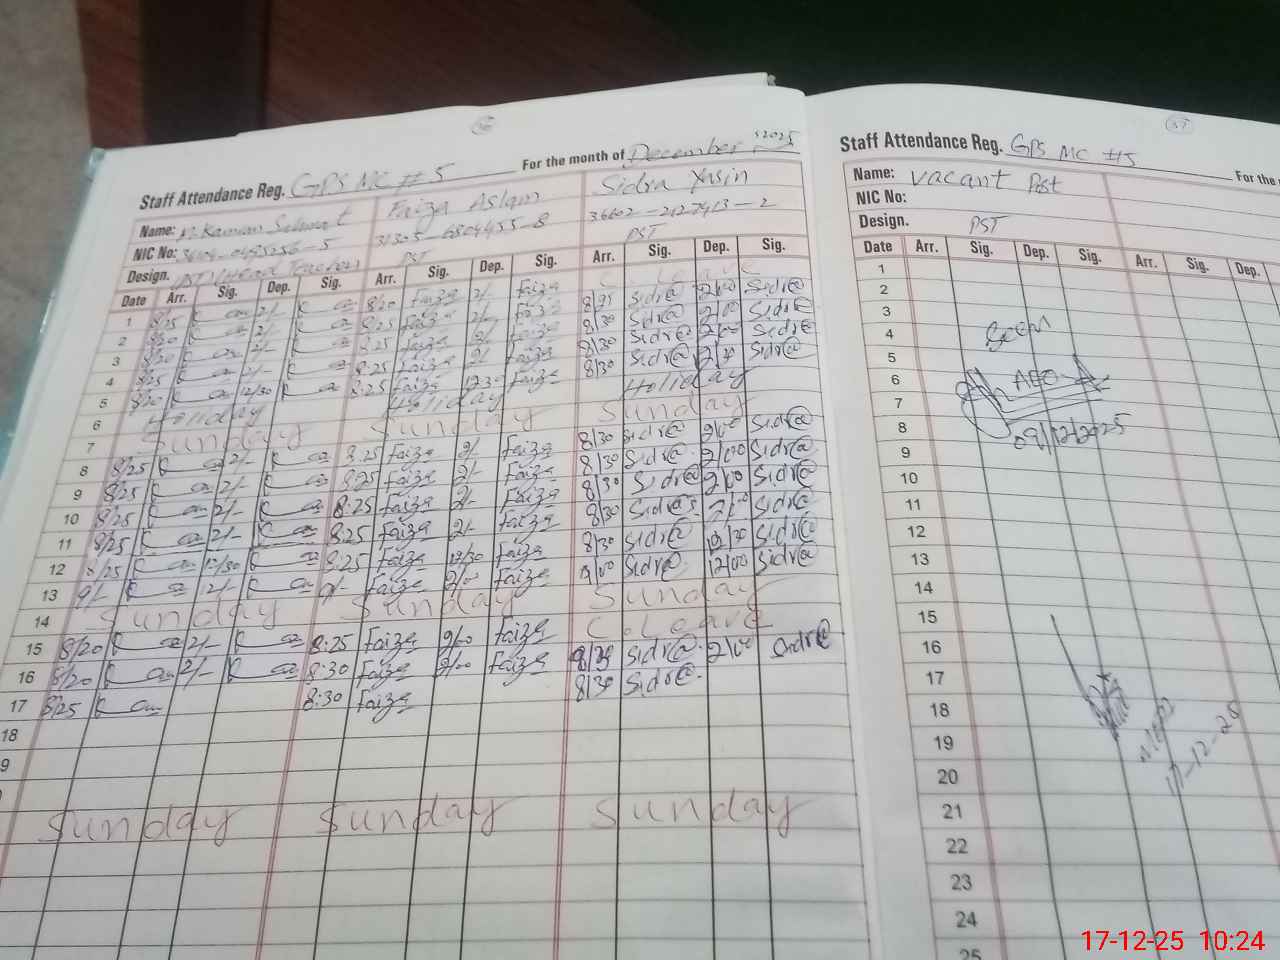 Staff Attendance Reg. GPS MC # 5 For the month of December 2025
Name: M. Kamran Faiza Aslam Sidra Yasin
NIC No: 31305-6804455-8 36602-2127413-2
Design. PST (Head Teacher) PST PST
Date Arr. Sig. Dep. Sig. Arr. Sig. Dep. Sig. Arr. Sig. Dep. Sig.
1 8/25 2/- 8/20 Faiza 2/- Faiza C. Leave
2 8/20 2/- 8:25 Faiza 2/- Faiza 8/25 Sidra 2/00 Sidra
3 8/20 2/- 8:25 Faiza 2/- Faiza 8/30 Sidra 2/00 Sidra
4 8/25 2/- 8:25 Faiza 2/- Faiza 8/30 Sidra 2/00 Sidra
5 8/20 12/30 8:25 Faiza 12:30 Faiza 8/30 Sidra 12/30 Sidra
6 Holiday Holiday Holiday
7 Sunday Sunday Sunday
8 8/25 2/- 8:25 Faiza 2/- Faiza 8/30 Sidra 2/00 Sidra
9 8/25 2/- 8:25 Faiza 2/- Faiza 8/30 Sidra 2/00 Sidra
10 8/25 2/- 8:25 Faiza 2/- Faiza 8/30 Sidra 2/00 Sidra
11 8/25 2/- 8:25 Faiza 2/- Faiza 8/30 Sidra 2/00 Sidra
12 8/25 12/30 8:25 Faiza 12/30 Faiza 8/30 Sidra 12/30 Sidra
13 9/- 2/- 9/- Faiza 2/00 Faiza 9/00 Sidra 12/00 Sidra
14 Sunday Sunday Sunday
15 8/20 2/- 8:25 Faiza 2/00 Faiza C. Leave
16 8/20 2/- 8:30 Faiza 2/00 Faiza 8/30 Sidra 2/00 Sidra
17 8/25 8:30 Faiza 8/30 Sidra
18
9
Sunday Sunday Sunday
37
Staff Attendance Reg. GPS MC #5 For the
Name: Vacant Post
NIC No:
Design. PST
Date Arr. Sig. Dep. Sig. Arr. Sig. Dep.
1
2
3
4 Seen
5
6 AEO
7
8 09/12/2025
9
10
11
12
13
14
15
16
17
18
19
20 17-12-25
21
22
23
24
25
17-12-25 10:24